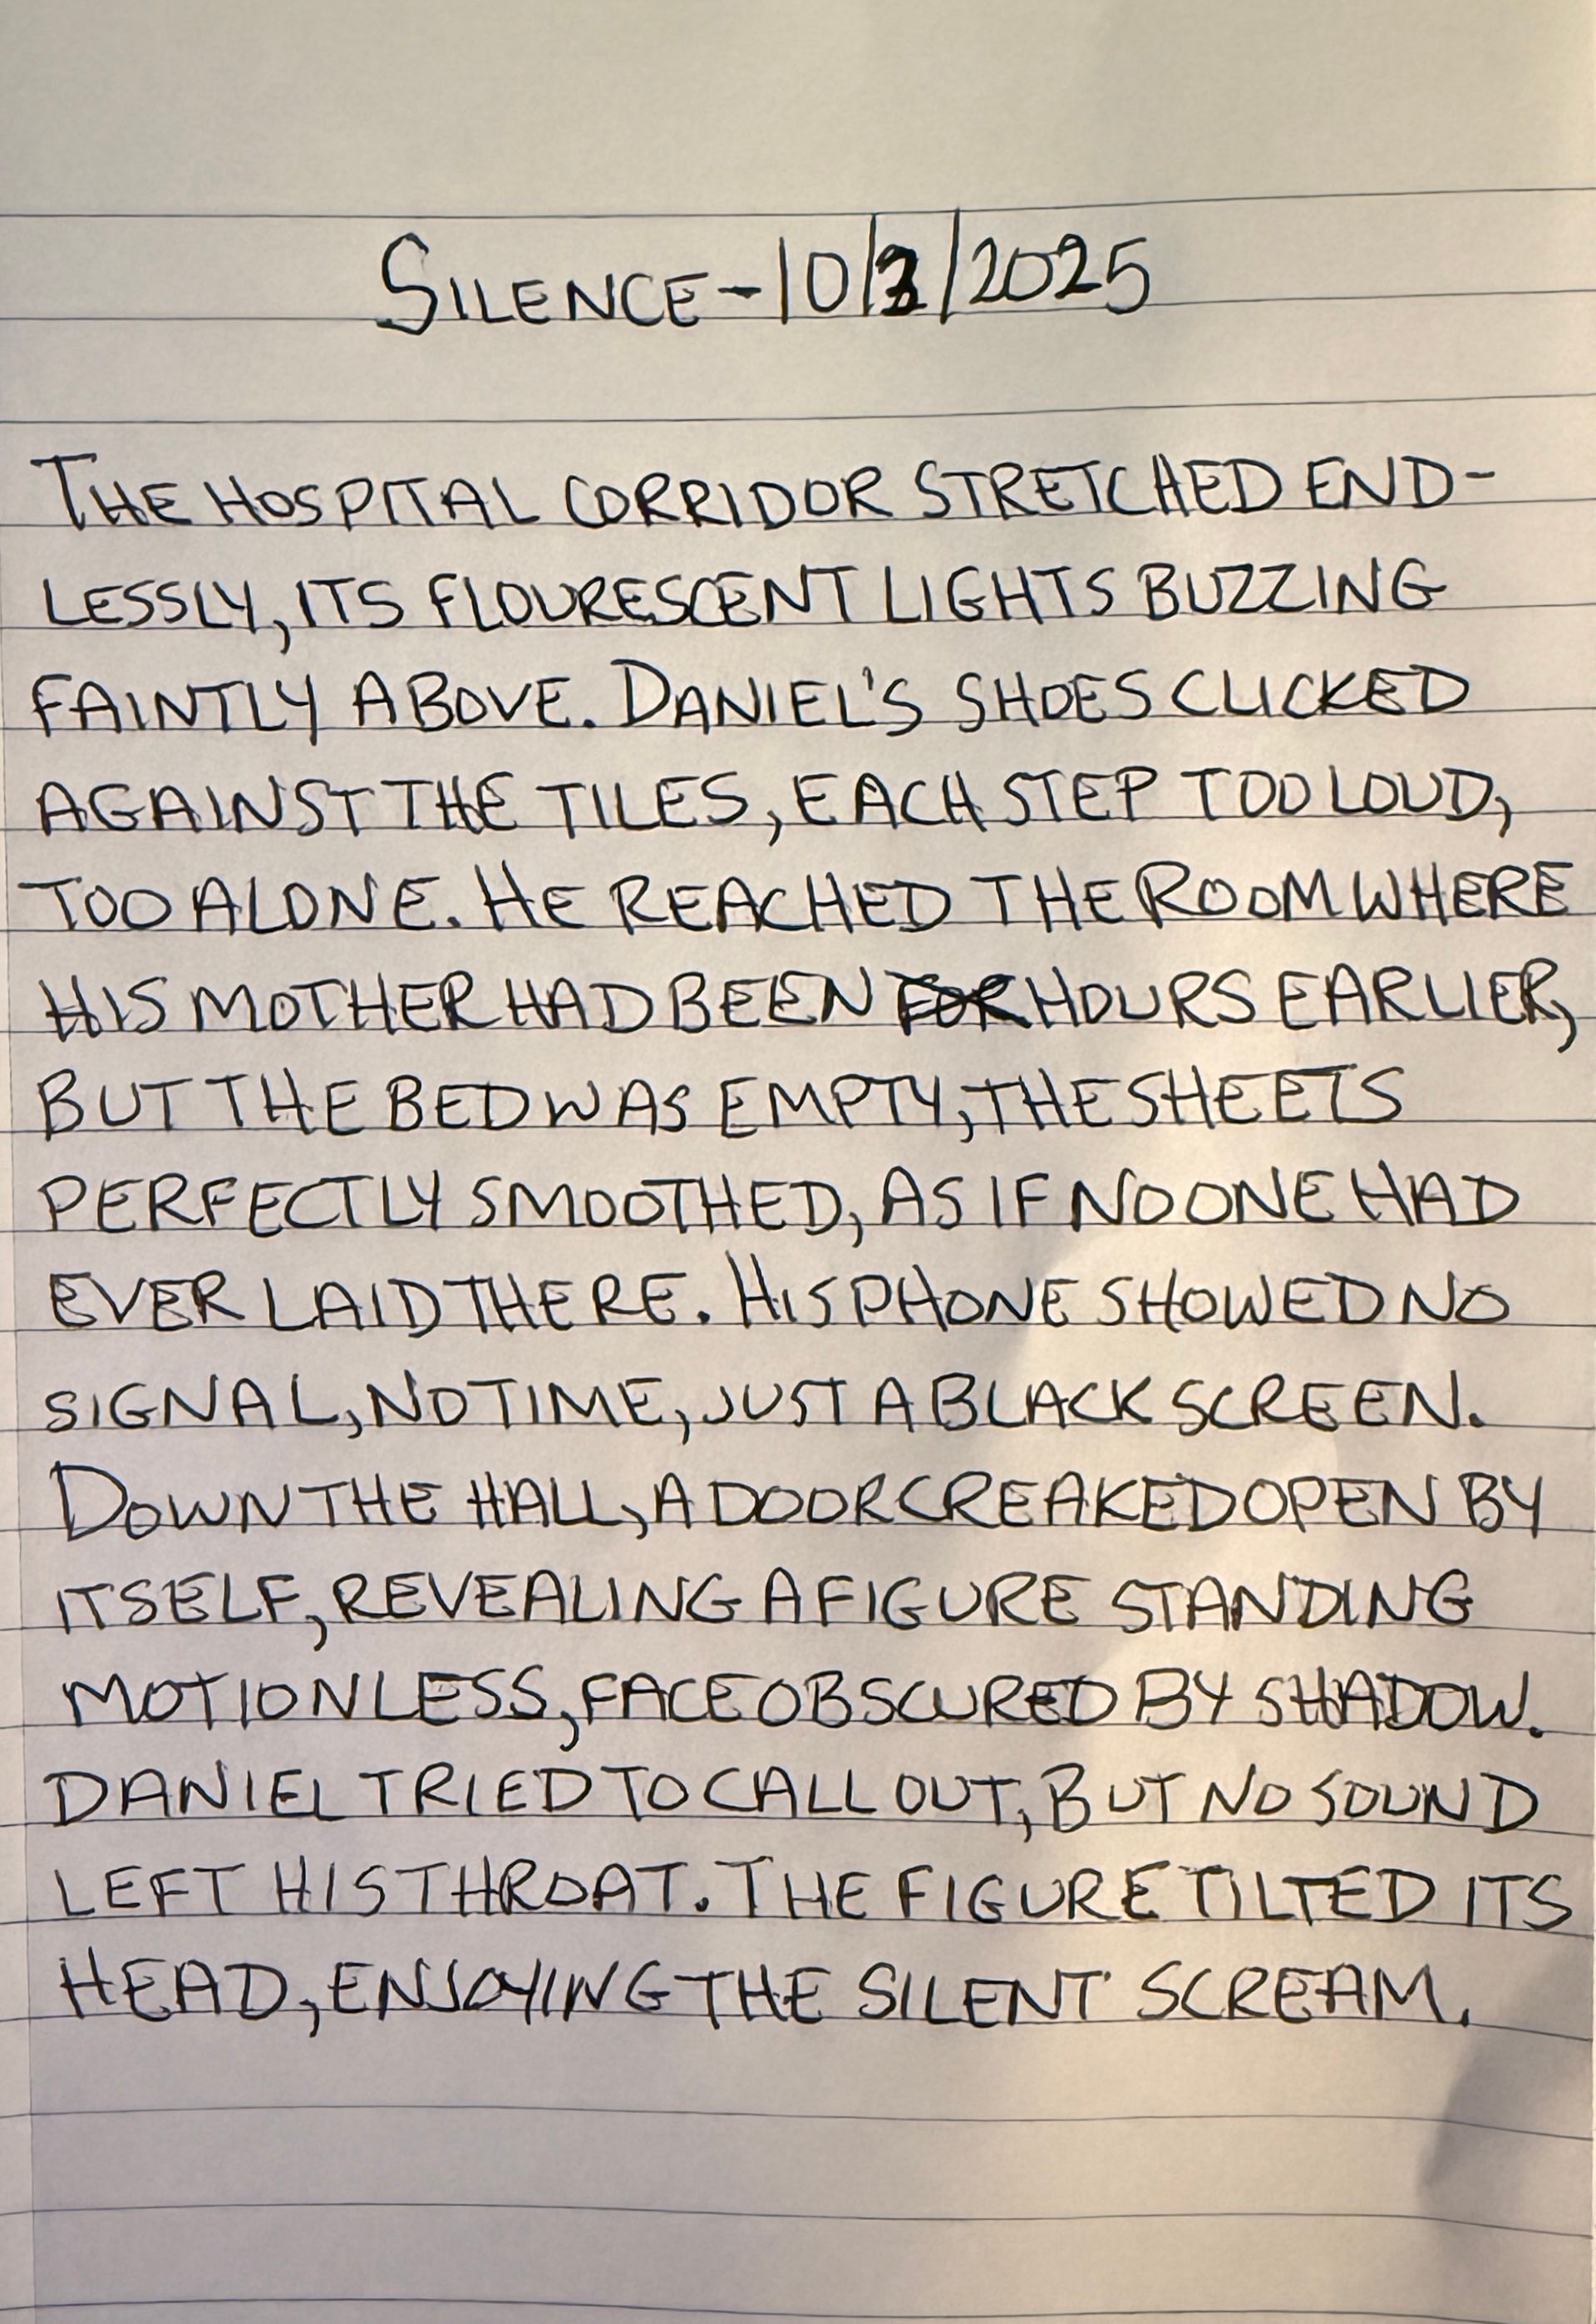 SILENCE - 10/3/2025
THE HOSPITAL CORRIDOR STRETCHED END-
LESSLY, ITS FLOURESCENT LIGHTS BUZZING
FAINTLY ABOVE. DANIEL'S SHOES CLICKED
AGAINST THE TILES, EACH STEP TOO LOUD,
TOO ALONE. HE REACHED THE ROOM WHERE
HIS MOTHER HAD BEEN FOR HOURS EARLIER,
BUT THE BED WAS EMPTY, THE SHEETS
PERFECTLY SMOOTHED, AS IF NO ONE HAD
EVER LAID THERE. HIS PHONE SHOWED NO
SIGNAL, NO TIME, JUST A BLACK SCREEN.
DOWN THE HALL, A DOOR CREAKED OPEN BY
ITSELF, REVEALING A FIGURE STANDING
MOTIONLESS, FACE OBSCURED BY SHADOW.
DANIEL TRIED TO CALL OUT, BUT NO SOUND
LEFT HIS THROAT. THE FIGURE TILTED ITS
HEAD, ENJOYING THE SILENT SCREAM.